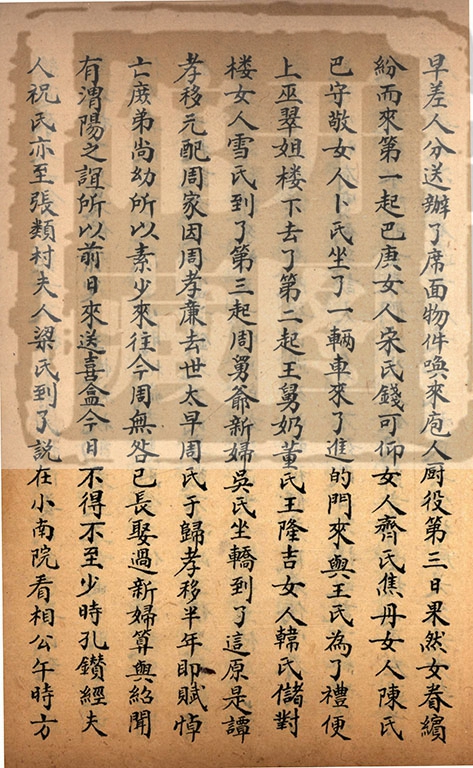 早差人分送辦了席面物件喚來庖人厨役第三日果然女眷續
紛而來第一起巴庚女人宋氏錢可仰女人齊氏焦丹女人陳氏
巴守敬女人卜氏坐了一輛車來了進的門來與王氏為了禮便
上巫翠姐楼下去了第二起王舅奶董氏王隆吉女人韓氏儲對
楼女人雪氏到了第三起周舅爺新婦吳氏坐轎到了這原是譚
孝移元配周家因周孝廉去世太早周氏于歸孝移半年即賦悼
亡庶弟尚幼所以素少來往今周無咎已長娶過新婦算與紹聞
有渭陽之誼所以前日來送喜盒今日不得不至少時孔鑚經夫
人祝氏亦至張類村夫人梁氏到了説在小南院看相公午時方